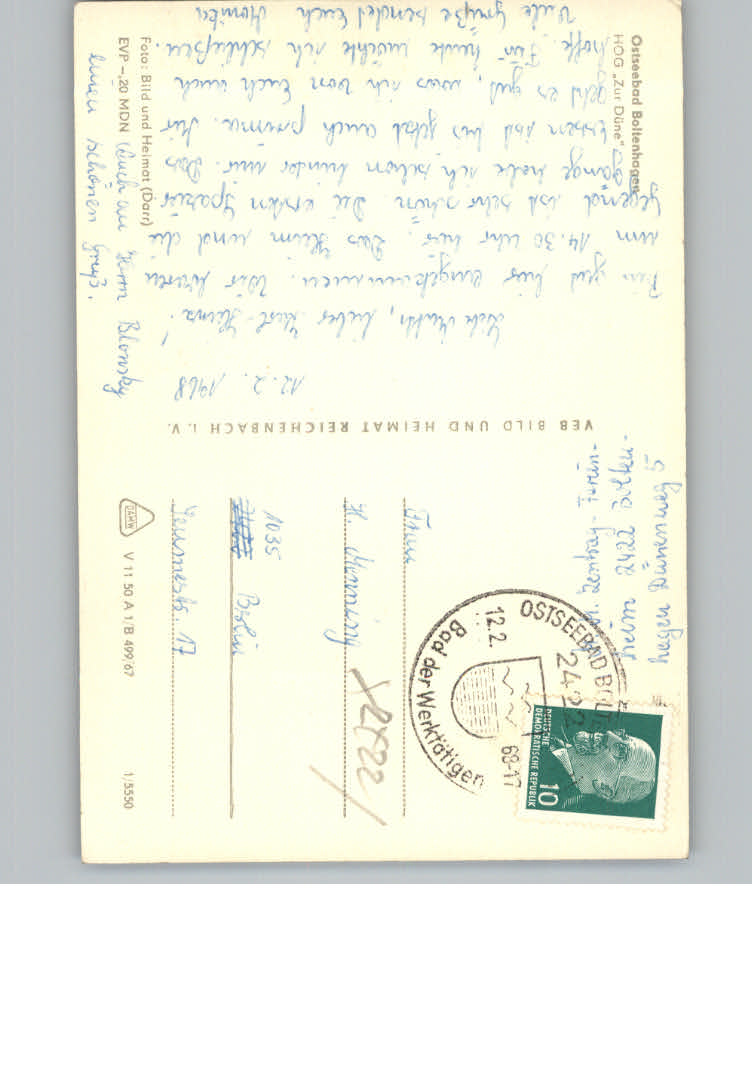 Ostseebad Boltenhagen
HOG „Zur Düne“
12. 2. 1968
Liebe Mutti, lieber Karl-Heinz!
Bin gut hier angekommen. Wir waren
um 14.30 Uhr hier. Das Heim und die
Gegend ist sehr schön. Die ersten Spazier
gänge habe ich schon hinter mir. Das
Essen ist bis jetzt auch prima. Mir
geht es gut, was ich von Euch auch
hoffe. Für heute möchte ich schließen.
Viele Grüße sendet Euch Monika
Auch an Herrn Blonsky
einen schönen Gruß.
Foto: Bild und Heimat (Darr)
EVP –,20 MDN
VEB BILD UND HEIMAT REICHENBACH I. V.
heim 2422 Bolten-
hagen Dünenweg 5
OSTSEEBAD BOLT
2422
12.2. 68-17
Bad der Werktätigen
DEUTSCHE
DEMOKRATISCHE REPUBLIK
10
Frau
H.
1035 Berlin
17
DAMW
V 11 50 A 1/B 499/67
1/5550